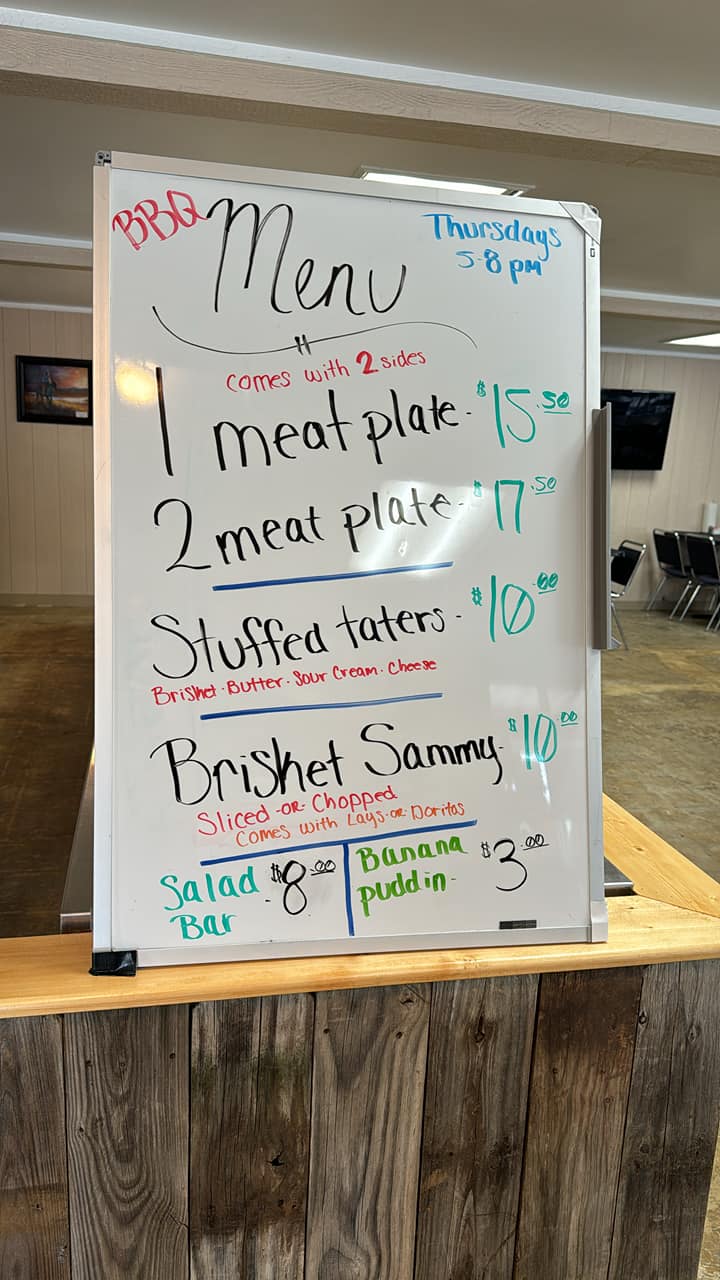 BBQ Menu
Thursdays
5-8 pm
comes with 2 sides
1 meat plate - $15.50
2 meat plate - $17.50
Stuffed taters - $10.00
Brisket · Butter · Sour Cream · Cheese
Brisket Sammy - $10.00
Sliced -or- Chopped
Comes with Lays -or- Doritos
Salad Bar - $8.00
Banana puddin - $3.00